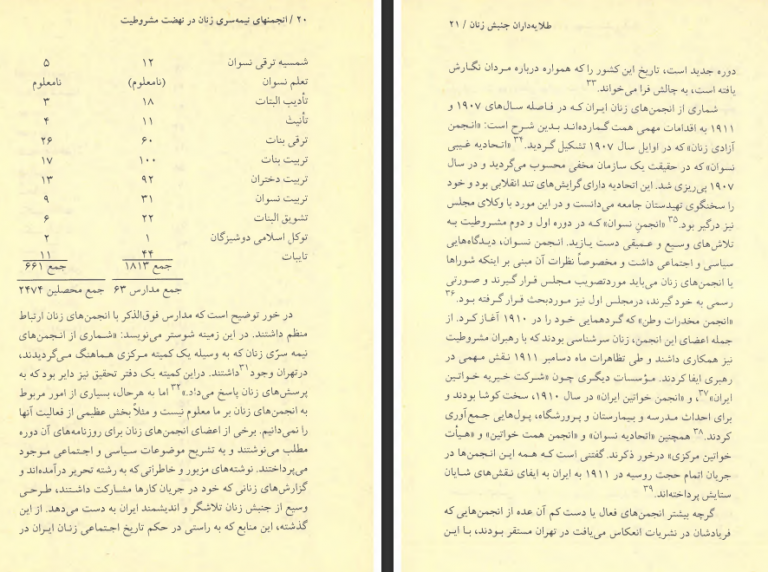 ۲۰ / انجمنهای نیمه‌سری زنان در نهضت مشروطیت
شمسیه ترقی نسوان ۱۲ ۵
تعلم نسوان (نامعلوم) نامعلوم
تأدیب البنات ۱۸ ۳
تأنیث ۱۱ ۴
ترقی بنات ۶۰ ۲۶
تربیت بنات ۱۰۰ ۱۷
تربیت دختران ۹۲ ۱۳
تربیت نسوان ۳۱ ۹
تشویق البنات ۲۲ ۶
توکل اسلامی دوشیزگان ۱ ۲
تایبات ۴۴ ۱۱
جمع ۱۸۱۳ جمع ۶۶۱
جمع مدارس ۶۳ جمع محصلین ۲۴۷۴
در خور توضیح است که مدارس فوق‌الذکر با انجمن‌های زنان ارتباط
منظم داشتند. در این زمینه شوستر می‌نویسد: «شماری از انجمن‌های
نیمه سرّی زنان که به وسیله یک کمیته مرکزی هماهنگ می‌گردیدند،
درتهران وجود۳۱ داشتند. دراین کمیته یک دفتر تحقیق نیز دایر بود که به
پرسش‌های زنان پاسخ می‌داد.»۳۲ اما به هرحال، بسیاری از امور مربوط
به انجمن‌های زنان بر ما معلوم نیست و مثلاً بخش عظیمی از فعالیت آنها
را نمی‌دانیم. برخی از اعضای انجمن‌های زنان برای روزنامه‌های آن دوره
مطلب می‌نوشتند و به تشریح موضوعات سیاسی و اجتماعی موجود
می‌پرداختند. نوشته‌های مزبور و خاطراتی که به رشته تحریر درآمده‌اند و
گزارش‌های زنانی که خود در جریان کارها مشارکت داشتند، طرحی
وسیع از جنبش زنان تلاشگر و اندیشمند ایران به دست می‌دهد. از این
گذشته، این منابع که به راستی در حکم تاریخ اجتماعی زنان ایران در
طلایه‌داران جنبش زنان / ۲۱
دوره جدید است، تاریخ این کشور را که همواره درباره مردان نگارش
یافته است، به چالش فرا می‌خواند.۳۳
شماری از انجمن‌های زنان ایران که در فاصله سال‌های ۱۹۰۷ و
۱۹۱۱ به اقدامات مهمی همت گمارده‌اند بدین شرح است: «انجمن
آزادی زنان» که در اوایل سال ۱۹۰۷ تشکیل گردید.۳۴ «اتحادیه غیبی
نسوان» که در حقیقت یک سازمان مخفی محسوب می‌گردید و در سال
۱۹۰۷ پی‌ریزی شد. این اتحادیه دارای گرایش‌های تند انقلابی بود و خود
را سخنگوی تهیدستان جامعه می‌دانست و در این مورد با وکلای مجلس
نیز درگیر بود.۳۵ «انجمن نسوان» که در دوره اول و دوم مشروطیت به
تلاش‌های وسیع و عمیقی دست یازید. انجمن نسوان، دیدگاه‌هایی
سیاسی و اجتماعی داشت و مخصوصاً نظرات آن مبنی بر اینکه شوراها
یا انجمن‌های زنان می‌باید موردتصویب مجلس قرار گیرند و صورتی
رسمی به خود گیرند، درمجلس اول نیز موردبحث قرار گرفته بود.۳۶
«انجمن مخدرات وطن» که گردهمایی خود را در ۱۹۱۰ آغاز کرد. از
جمله اعضای این انجمن، زنان سرشناسی بودند که با رهبران مشروطیت
نیز همکاری داشتند و طی تظاهرات ماه دسامبر ۱۹۱۱ نقش مهمی در
رهبری ایفا کردند. مؤسسات دیگری چون «شرکت خیریه خواتین
ایران»۳۷، و «انجمن خواتین ایران» در سال ۱۹۱۰، سخت کوشا بودند و
برای احداث مدرسه و بیمارستان و پرورشگاه، پول‌هایی جمع‌آوری
کردند.۳۸ همچنین «اتحادیه نسوان» و «انجمن همت خواتین» و «هیأت
خواتین مرکزی» درخور ذکرند. گفتنی است که همه این انجمن‌ها در
جریان اتمام حجت روسیه در ۱۹۱۱ به ایران به ایفای نقش‌های شایان
ستایش پرداخته‌اند.۳۹
گرچه بیشتر انجمن‌های فعال یا دست کم آن عده از انجمن‌هایی که
فریادشان در نشریات انعکاس می‌یافت در تهران مستقر بودند، با این